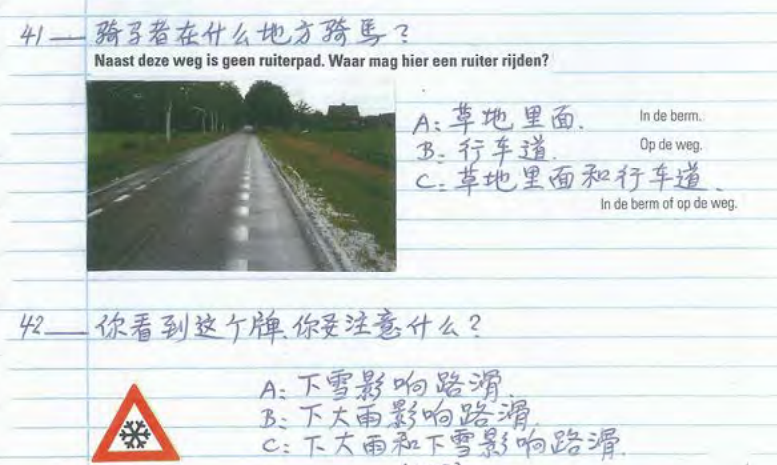 41— 骑马者在什么地方骑马?
Naast deze weg is geen ruiterpad. Waar mag hier een ruiter rijden?
A: 草地里面. In de berm.
B: 行车道. Op de weg.
C: 草地里面和行车道.
In de berm of op de weg.
42— 你看到这个牌.你要注意什么?
A: 下雪影响路滑.
B: 下大雨影响路滑.
C: 下大雨和下雪影响路滑.